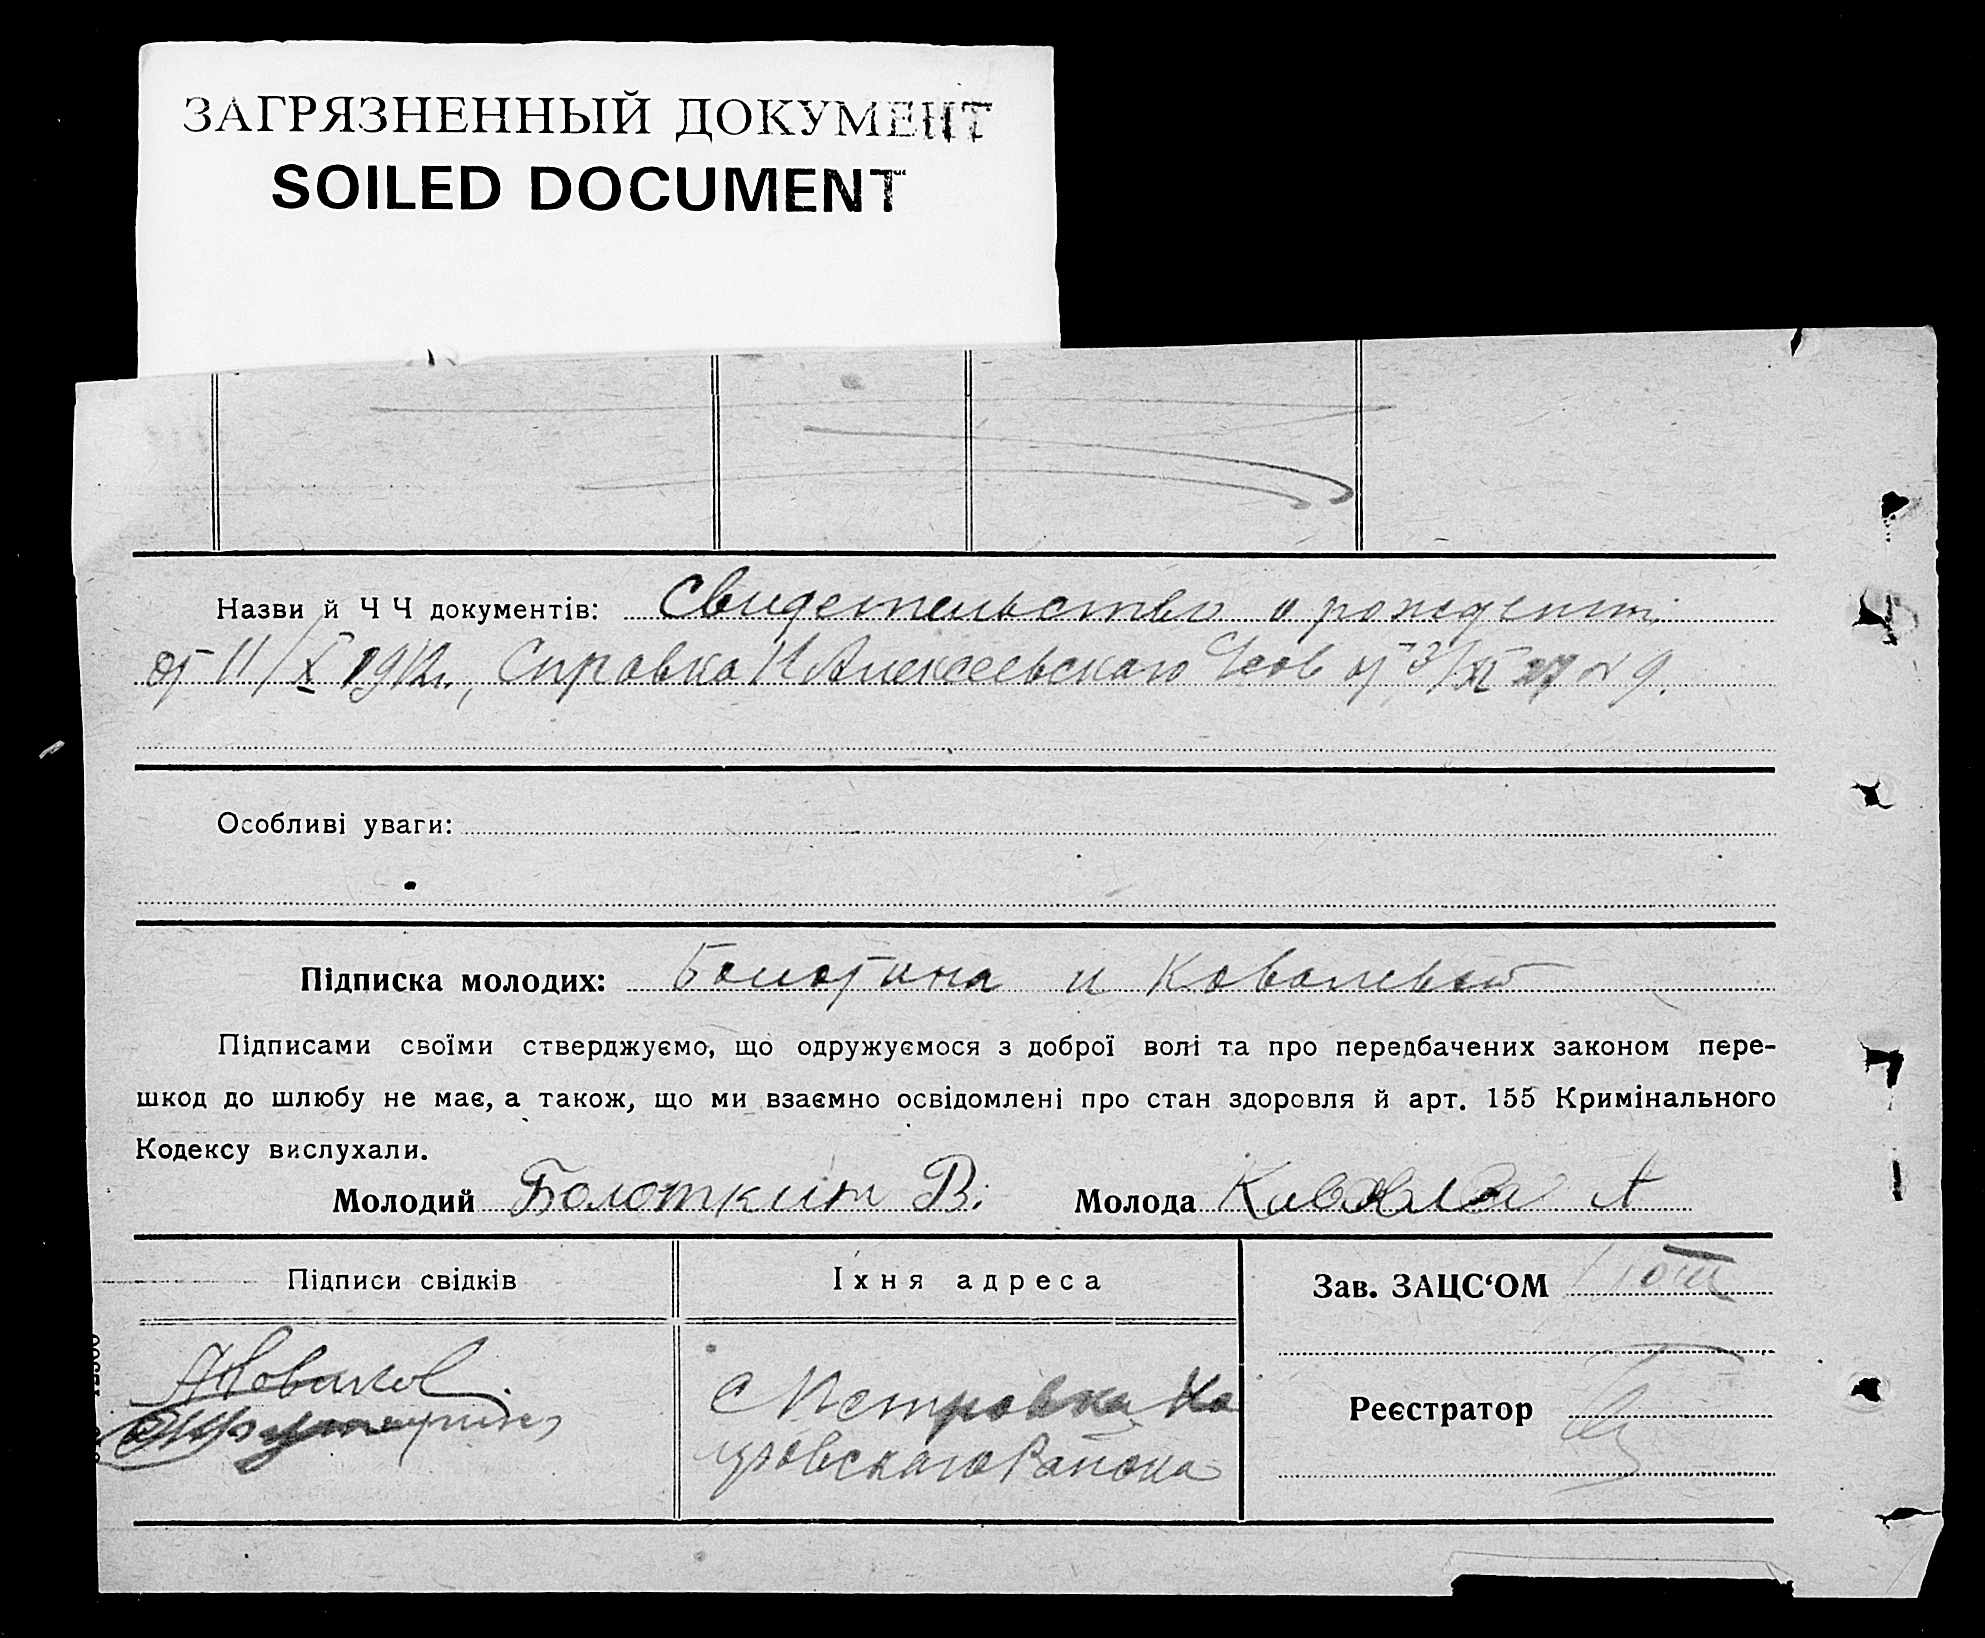 ЗАГРЯЗНЕННЫЙ ДОКУМЕНТ
SOILED DOCUMENT
Назви й Ч Ч документів: Свидетельство о рождении
от 11/X 1912г., Справка Алексеевскаго
Особливі уваги:
Підписка молодих: и
Підписами своїми стверджуємо, що одружуємося з доброї волі та про передбачених законом пере-
шкод до шлюбу не має, а також, що ми взаємно освідомлені про стан здоровля й арт. 155 Кримінального
Кодексу вислухали.
Молодий Болоткин В. Молода А
Підписи свідків Їхня адреса Зав. ЗАЦС‘ОМ
с Петровка
района
Реєстратор